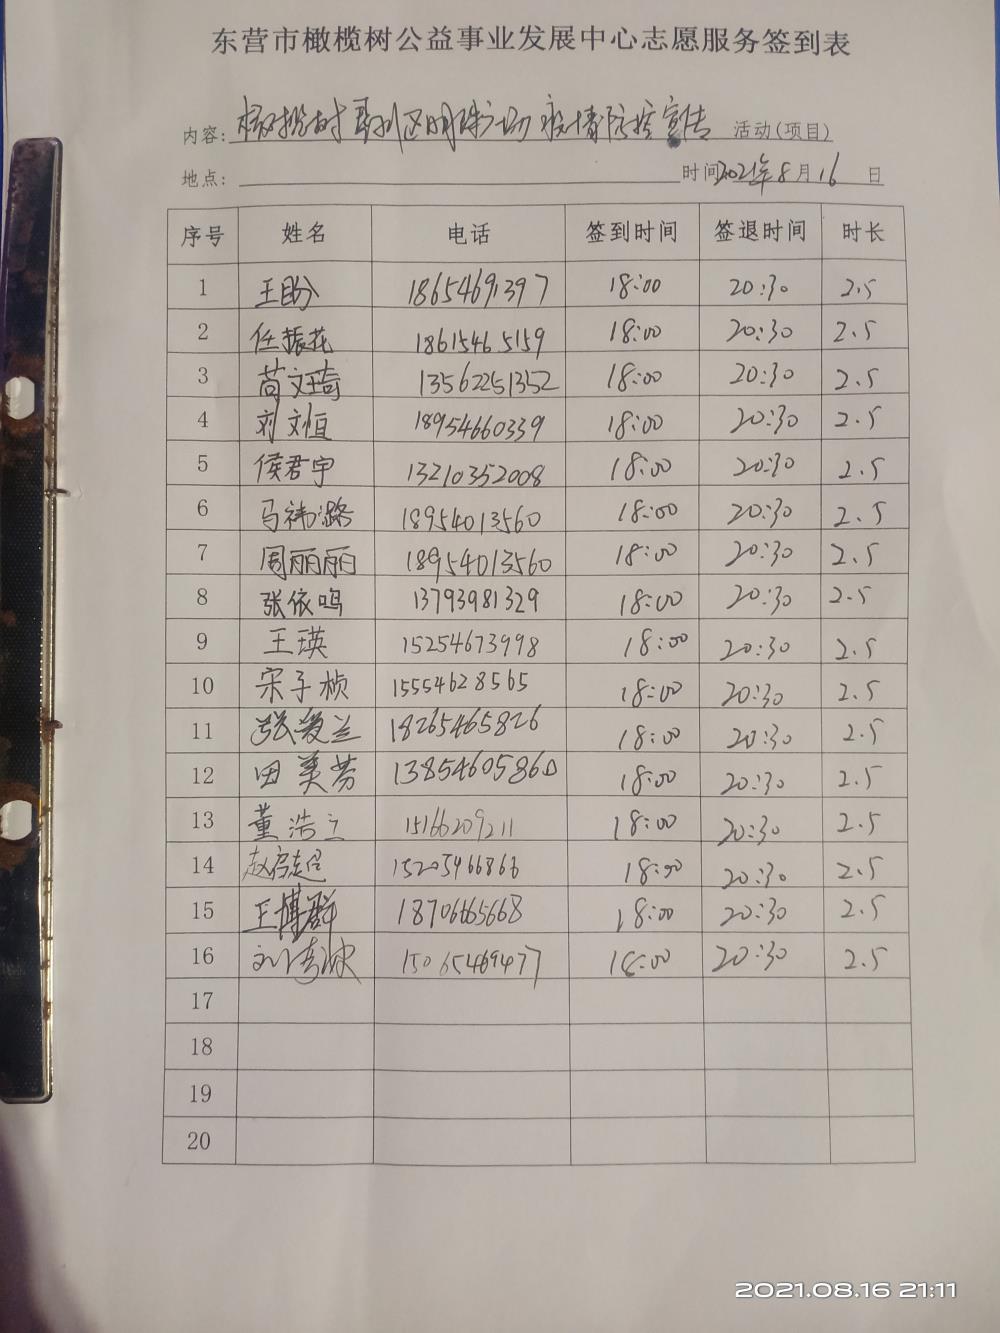 东营市橄榄树公益事业发展中心志愿服务签到表
内容: 橄榄树垦利区明珠广场疫情防控宣传 活动(项目)
地点: 时间2021年8月16日
序号 姓名 电话 签到时间 签退时间 时长
1 王盼 18654691397 18:00 20:30 2.5
2 任振花 18615465159 18:00 20:30 2.5
3 苘文琦 13562251352 18:00 20:30 2.5
4 刘文恒 18954660339 18:00 20:30 2.5
5 侯君宇 13210352008 18:00 20:30 2.5
6 马祎潞 18954013560 18:00 20:30 2.5
7 周丽丽 18954013560 18:00 20:30 2.5
8 张依鸣 13793981329 18:00 20:30 2.5
9 王瑛 15254673998 18:00 20:30 2.5
10 宋子桢 15554628565 18:00 20:30 2.5
11 张爱兰 18265465826 18:00 20:30 2.5
12 田美芳 13854605860 18:00 20:30 2.5
13 董浩立 15166209211 18:00 20:30 2.5
14 15205466866 18:00 20:30 2.5
15 王博群 18706665668 18:00 20:30 2.5
16 15065469477 18:00 20:30 2.5
17
18
19
20
2021.08.16 21:11